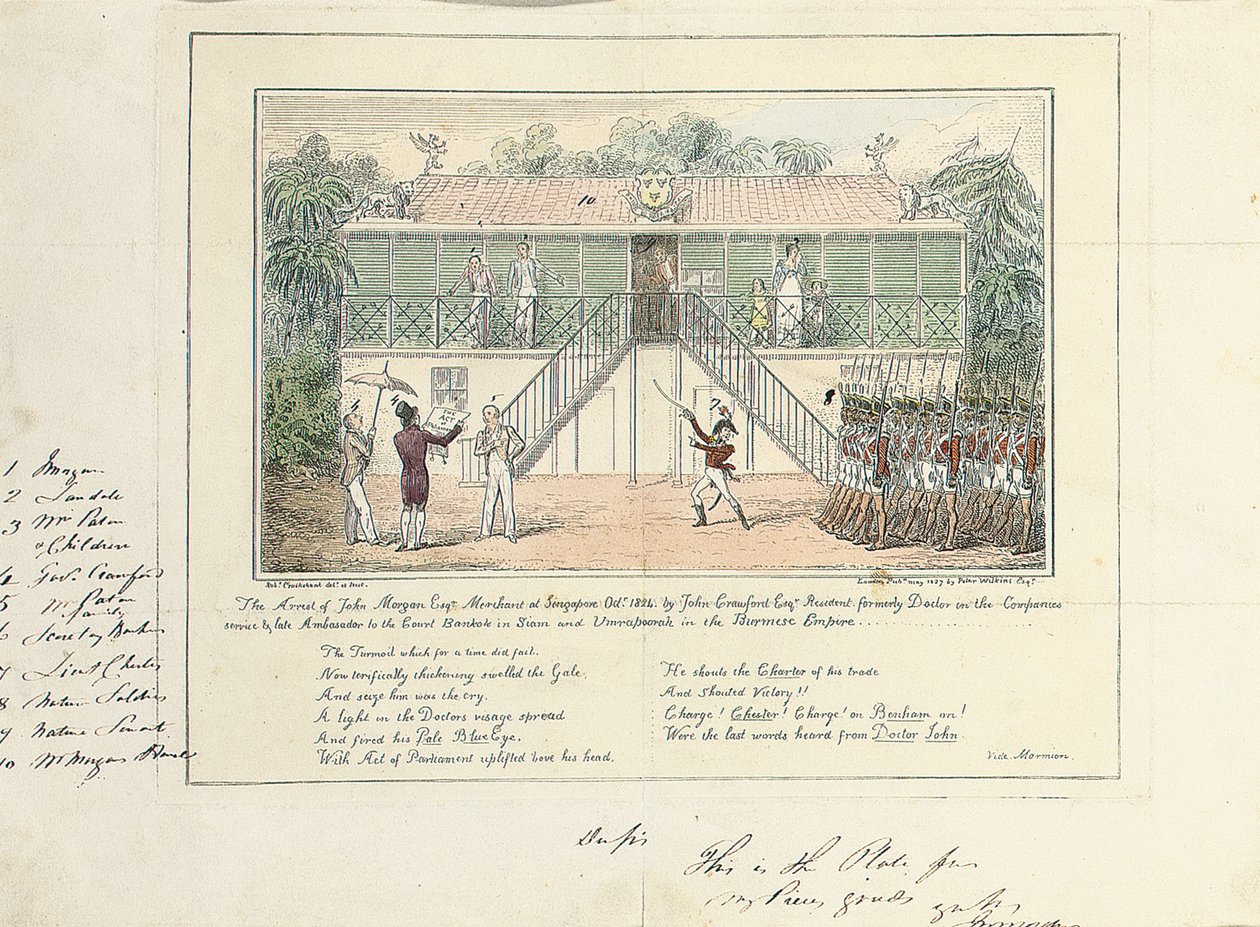 THE
ACT
10
7
8
Robt. Cruikshank delt. et fecit.
London Pubd. May 1827 by Peter Wilkins Esqr.
The Arrest of John Morgan Esqr. Merchant at Singapore Octr. 1824. by John Crawford Esqr. Resident formerly Doctor in the Companies
service & late Ambasador to the Court Bankok in Siam and Umrapoorah in the Burmese Empire
The Turmoil which for a time did fail.
Now terifically thickening swelled the Gale.
And seize him was the cry.
A light in the Doctors visage spread
And fired his Pale Blue Eye.
With Act of Parliament uplifted 'bove his head,
He shouts the Charter of his trade
And Shouted Victory!!
Charge! Chester! Charge! on Benham on!
Were the last words heard from Doctor John.
Vide Marmion.
1 Jmorgan
2 Landale
3 Mrs Paton
& Children
4 Govr. Crawford
5 Mr Paton
family
6 Secretary
7 Lieut Chester
8 Native Soldiers
9 Native Servant
10 Mr Morgans House
This is the Plate for
my Piece goods